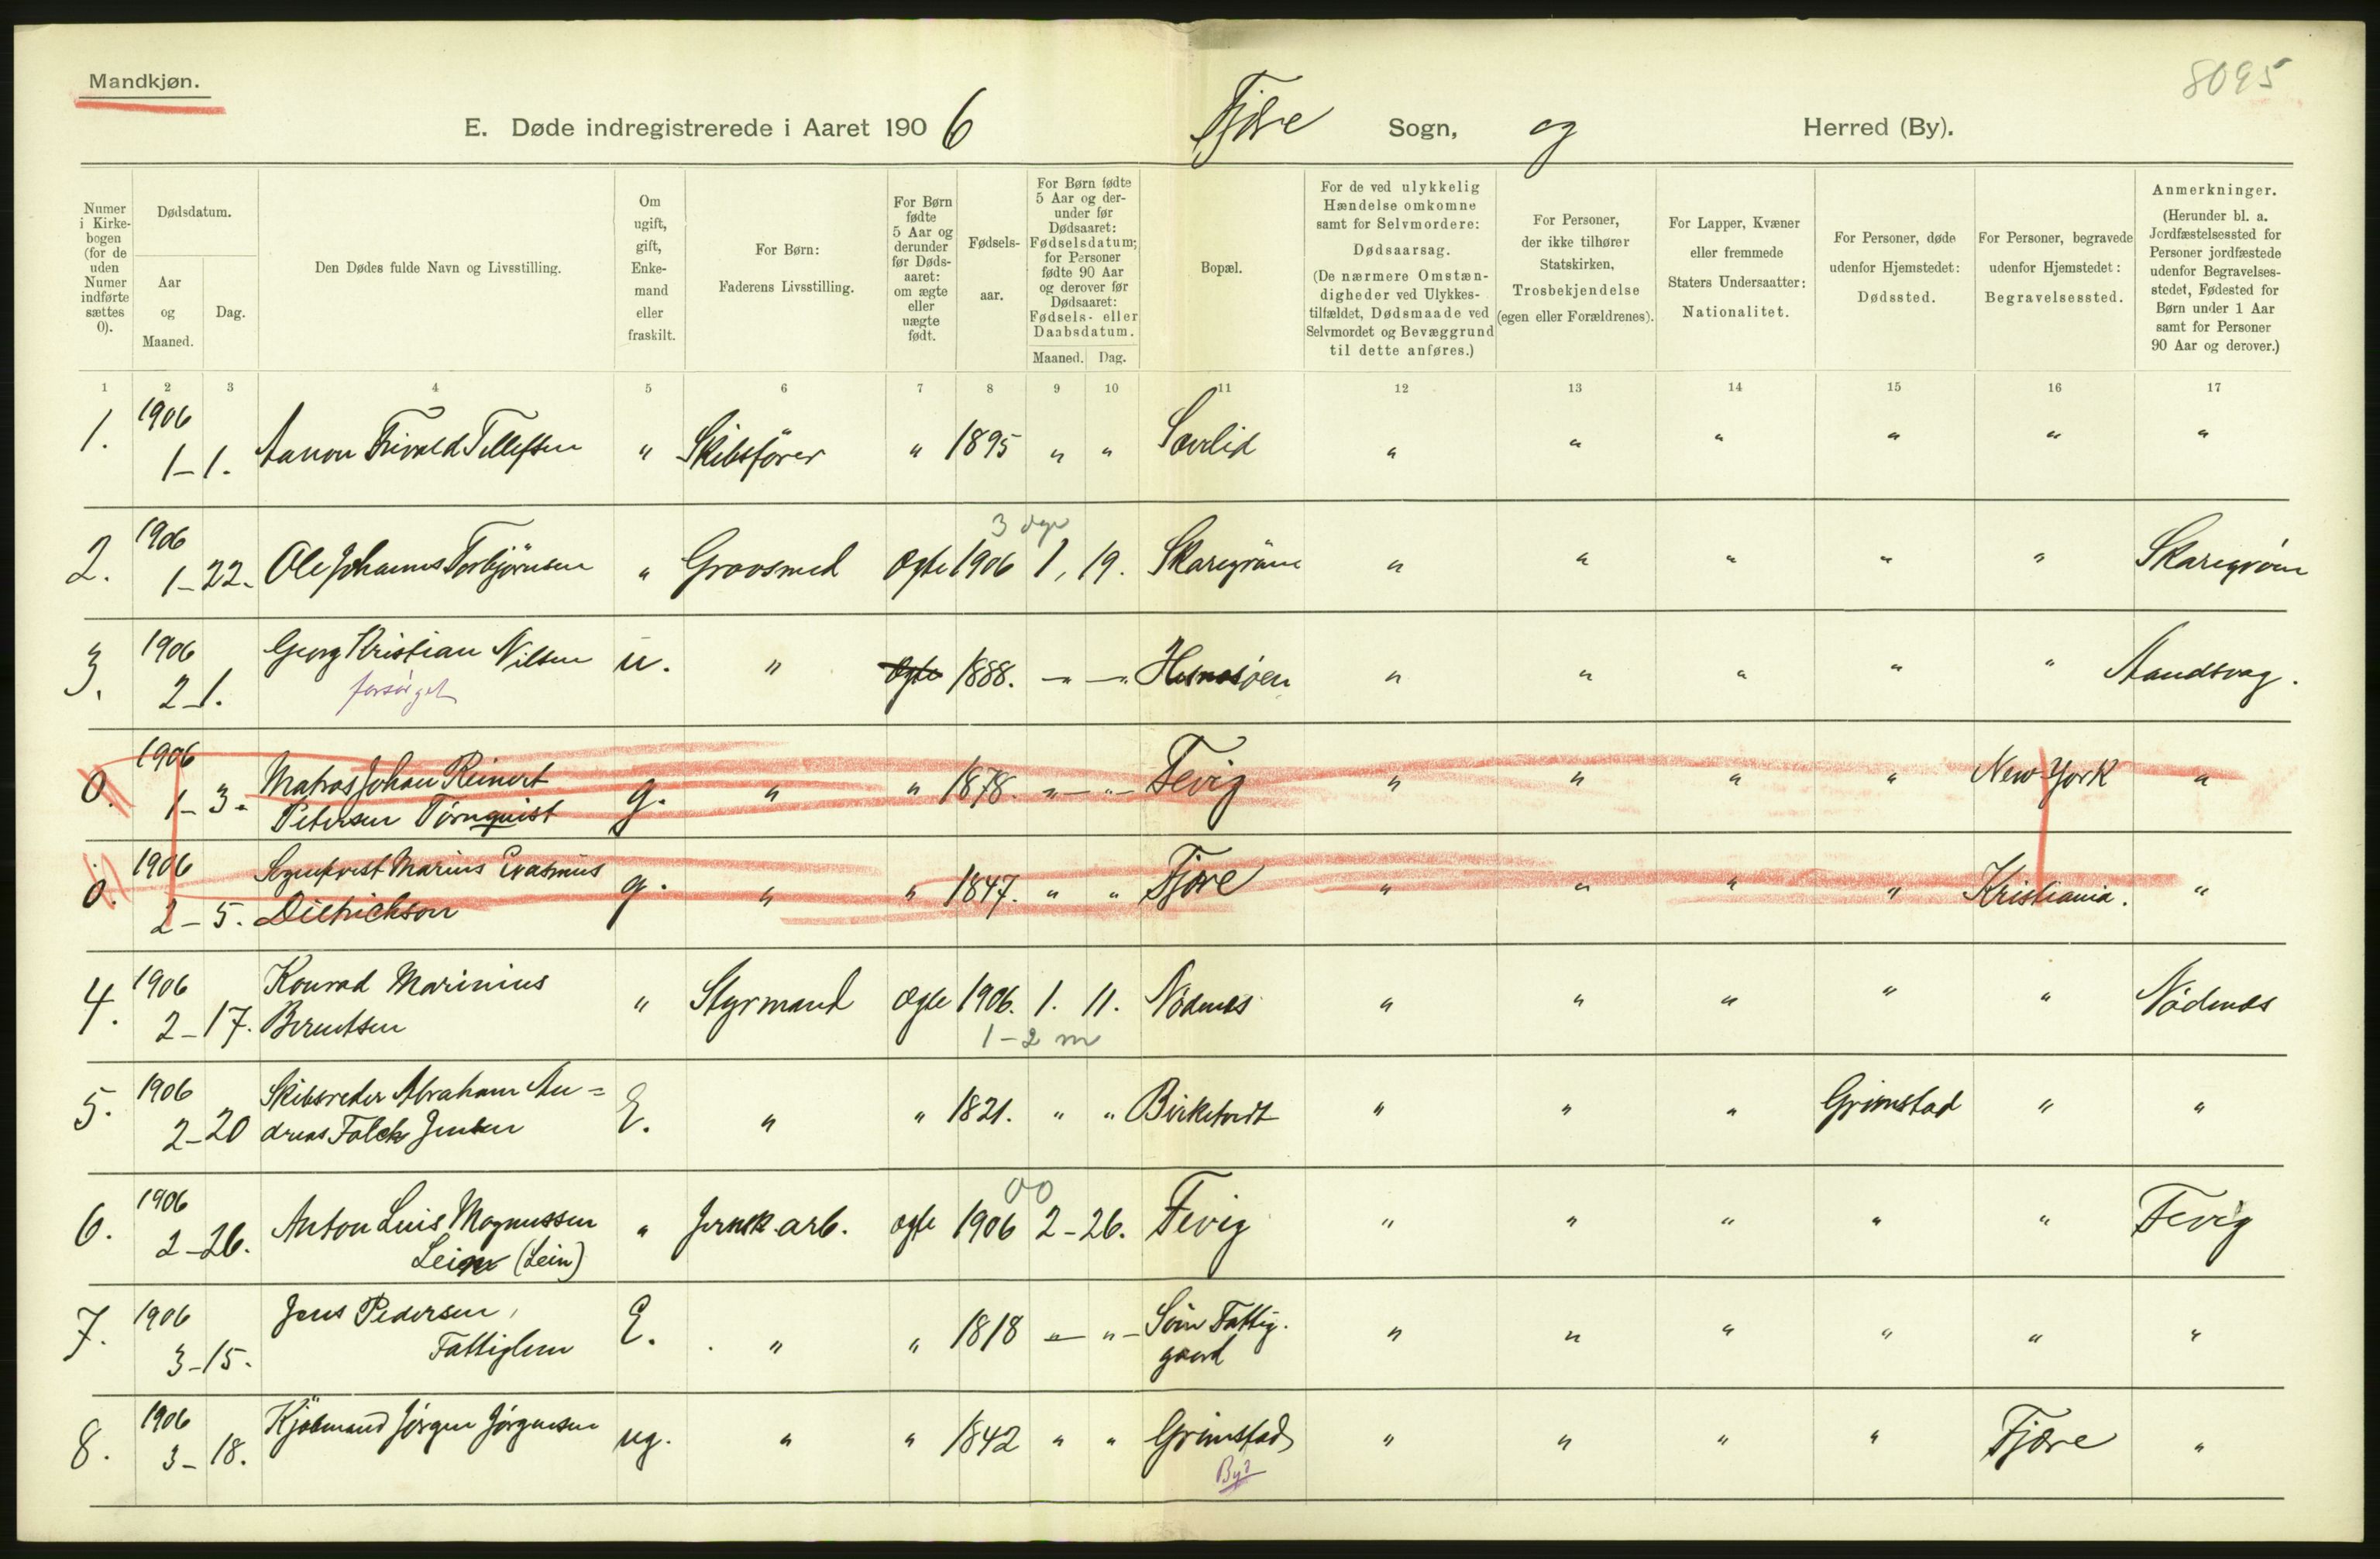 Mandkjøn.
8095
E. Døde indregistrerede i Aaret 1906 Fjære Sogn, og Herred (By).
Numer i Kirkebogen (for de uden Numer indførte sættes 0).
Dødsdatum.
Aar og Maaned.
Dag.
Den Dødes fulde Navn og Livsstilling.
Om ugift, gift, Enkemand eller fraskilt.
For Børn: Faderens Livsstilling.
For Børn fødte 5 Aar og derunder før Dødsaaret: om ægte eller uægte født.
Fødselsaar.
For Børn fødte 5 Aar og derunder før Dødsaaret: Fødselsdatum; for Personer fødte 90 Aar og derover før Dødsaaret: Fødsels- eller Daabsdatum.
Maaned. Dag.
Bopæl.
For de ved ulykkelig Hændelse omkomne samt for Selvmordere: Dødsaarsag. (De nærmere Omstændigheder ved Ulykkestilfældet, Dødsmaade ved Selvmordet og Bevæggrund til dette anføres.)
For Personer, der ikke tilhører Statskirken, Trosbekjendelse (egen eller Forældrenes).
For Lapper, Kvæner eller fremmede Staters Undersaatter: Nationalitet.
For Personer, døde udenfor Hjemstedet: Dødssted.
For Personer, begravede udenfor Hjemstedet: Begravelsessted.
Anmerkninger. (Herunder bl. a. Jordfæstelsessted for Personer jordfæstede udenfor Begravelsesstedet, Fødested for Børn under 1 Aar samt for Personer 90 Aar og derover.)
1 2 3 4 5 6 7 8 9 10 11 12 13 14 15 16 17
1. 1906 1-1. Aanon Trivald Tellefsen " Skibsfører " 1895 " " Sævlid " " " " " "
3 dgr
2. 1906 1-22. Ole Johannes Torbjørnsen " Grovsmed ægte 1906 1, 19. Skaregrøm " " " " " Skaregrøm
3. 1906 2-1. Georg Kristian Nilsen u. " ægte 1888. " " Hesnesøen " " " " " Aandsvag.
forsørget
0. 1906 1-3. Matros Johan Reinert g. " " 1878. " " Fevig " " " " New-York "
Petersen Törnquist
0. 1906 2-5. Marius Erasmus g. " " 1847. " " Fjære " " " " Kristiania. "
Dietrichson
4. 1906 2-17. Konrad Marinius " Styrmand ægte 1906. 1. 11. Nødenæs " " " " " Nødenæs
Berentsen 1-2 m
5. 1906 2-20 Skibsreder Abraham An= E. " " 1821. " " Birketveit " " " Grimstad " "
dreas Falck Jensen
00
6. 1906 2-26. Anton Luis Magnussen " Jernsk. arb. ægte 1906 2-26. Fevig " " " " " Fevig
Lein (Lein)
7. 1906 3-15. Jens Pedersen, E. " " 1818 " " Søm Fattig. " " " " " "
Fattiglem gaard
8. 1906 3-18. Kjøbmand Jørgen Jørgensen ug. " " 1842 " " Grimstad " " " " Fjære "
By?